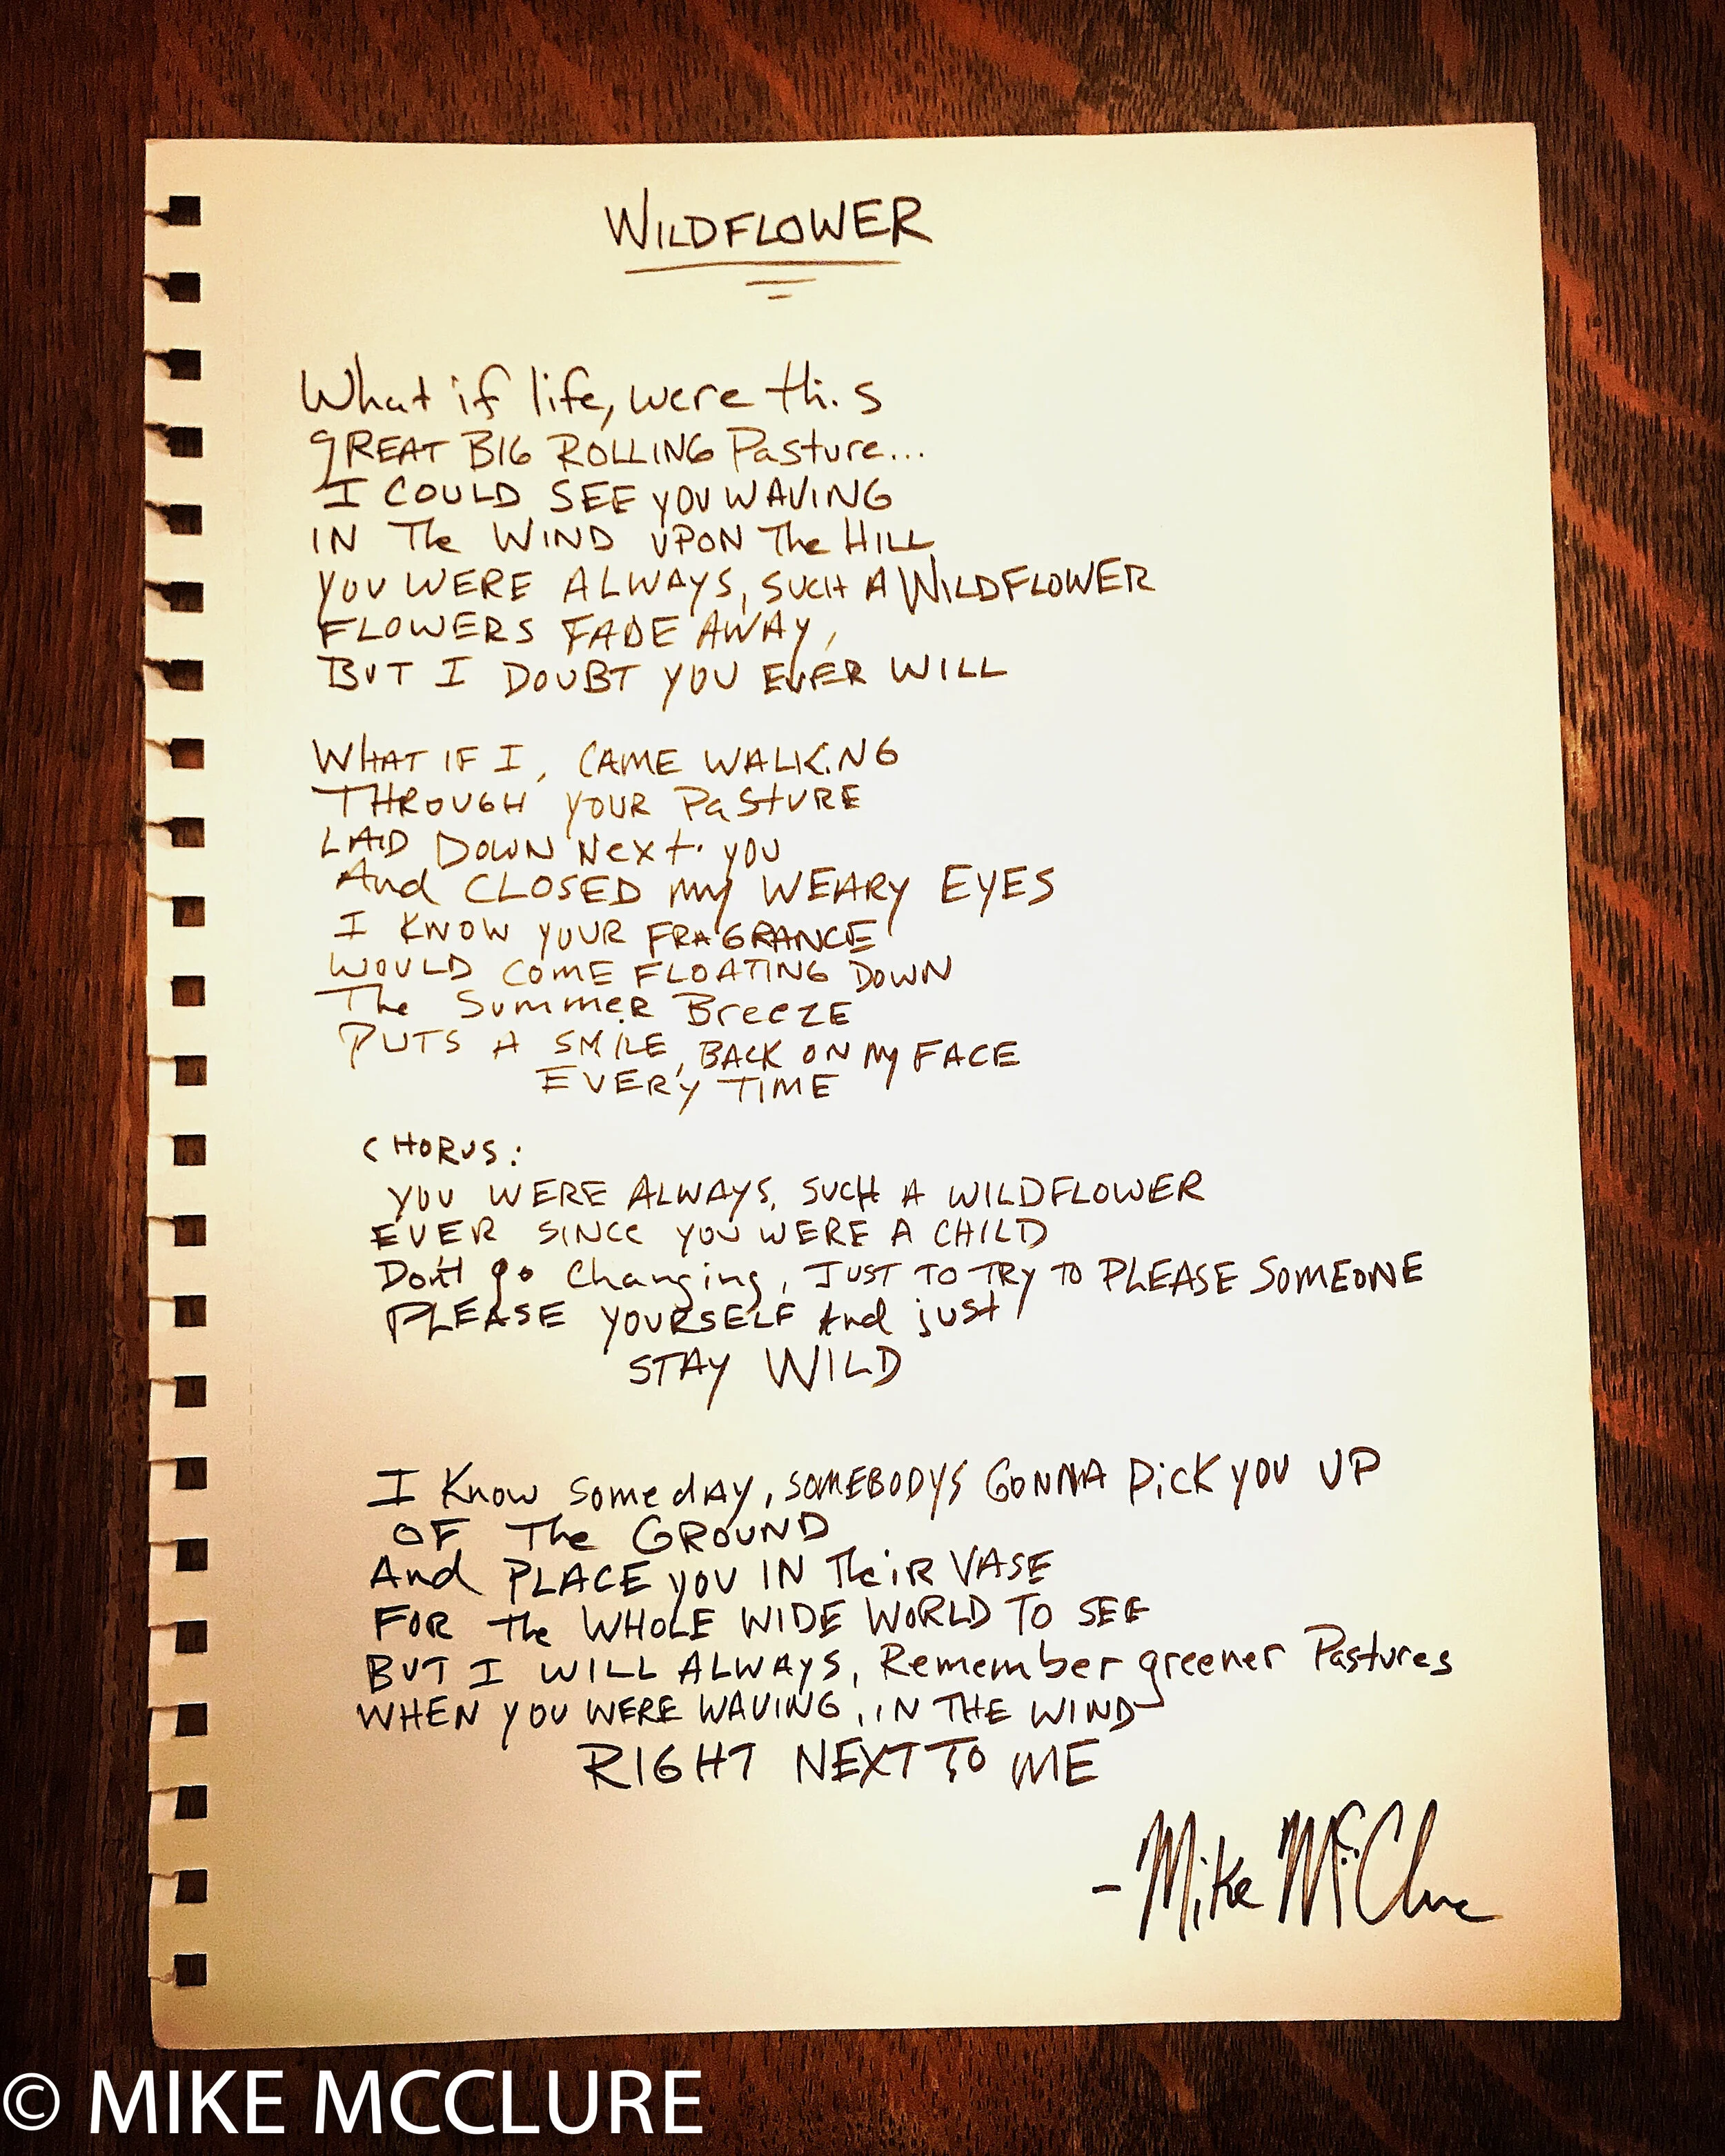 WILDFLOWER
What if life, were this
gREAT BIG ROLLING Pasture...
I COULD SEE YOU WAVING
IN The WIND UPON The HILL
YOU WERE ALWAYS, SUCH A WILDFLOWER
FLOWERS FADE AWAY,
BUT I DOUBT YOU EVER WILL
WHAT IF I, CAME WALKING
THROUGH YOUR PaStURE
LAID DOWN Next. you
And CLOSED my WEARY EYES
I KNOW YOUR FRAGRANCE
WOULD COME FLOATING DOWN
The SummeR BreeZE
PUTS A SMILE, BACK ON My FACE
EVERY TIME
CHORUS:
YOU WERE ALWAYS, SUCH A WILDFLOWER
EVER SINCe YOU WERE A CHILD
Don't go Changing, JUST TO TRY TO PLEASE SOMEONE
PLEASE YOURSELF And just
STAY WILD
I Know SomedAy, SOMEBODYS GONNA PicK YOU UP
OF The GROUND
And PLACE YOU IN TheiR VASE
FOR The WHOLE WIDE WORLD TO SEE
BUT I WILL ALWAYS, Remember greener Pastures
WHEN YOU WERE WAVING, IN THE WIND
RIGHT NEXT TO ME
- Mike McClure
© MIKE MCCLURE